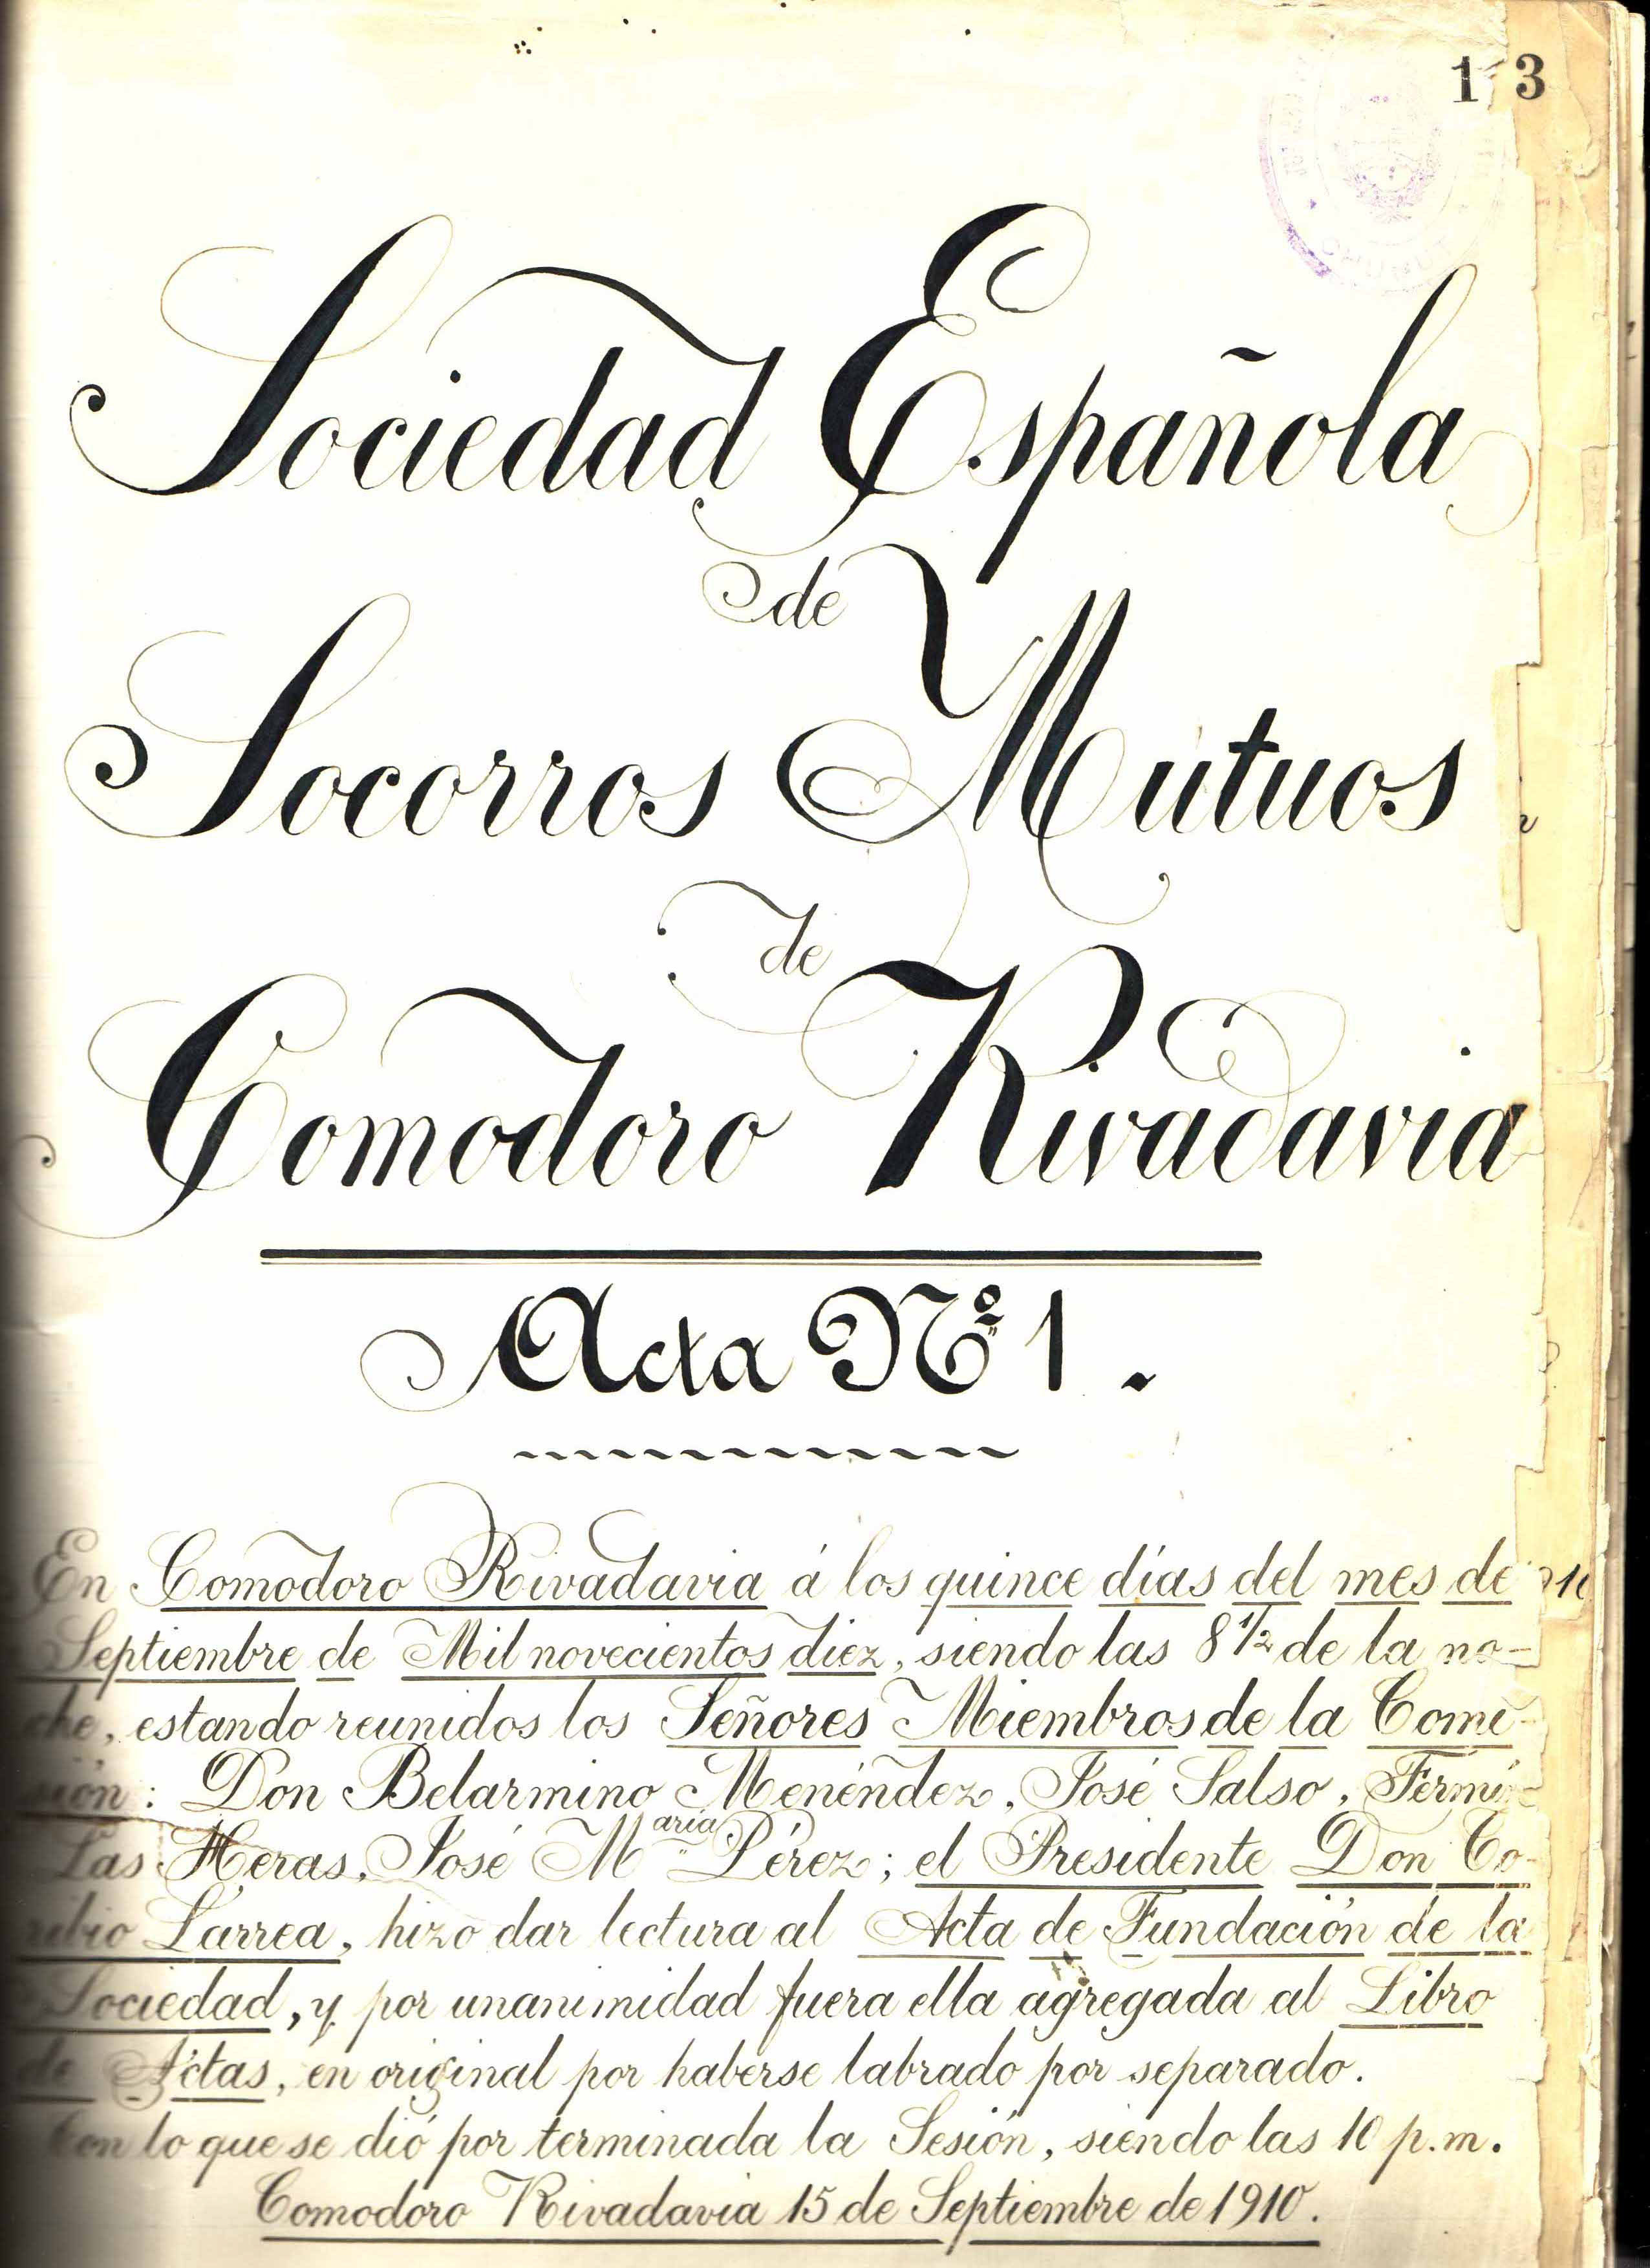 1 3
Sociedad Española
de
Socorros Mutuos
de
Comodoro Rivadavia
Acta Nº 1.
En Comodoro Rivadavia á los quince días del mes de
Septiembre de Mil novecientos diez, siendo las 8 1/2 de la no-
che, estando reunidos los Señores Miembros de la Comi-
sión: Don Belarmino Menéndez, José Salso, Fermín
Las Heras, José María Pérez; el Presidente Don To-
ribio Larrea, hizo dar lectura al Acta de Fundación de la
Sociedad, y por unanimidad fuera ella agregada al Libro
de Actas, en original por haberse labrado por separado.
Con lo que se dió por terminada la Sesión, siendo las 10 p.m.
Comodoro Rivadavia 15 de Septiembre de 1910.